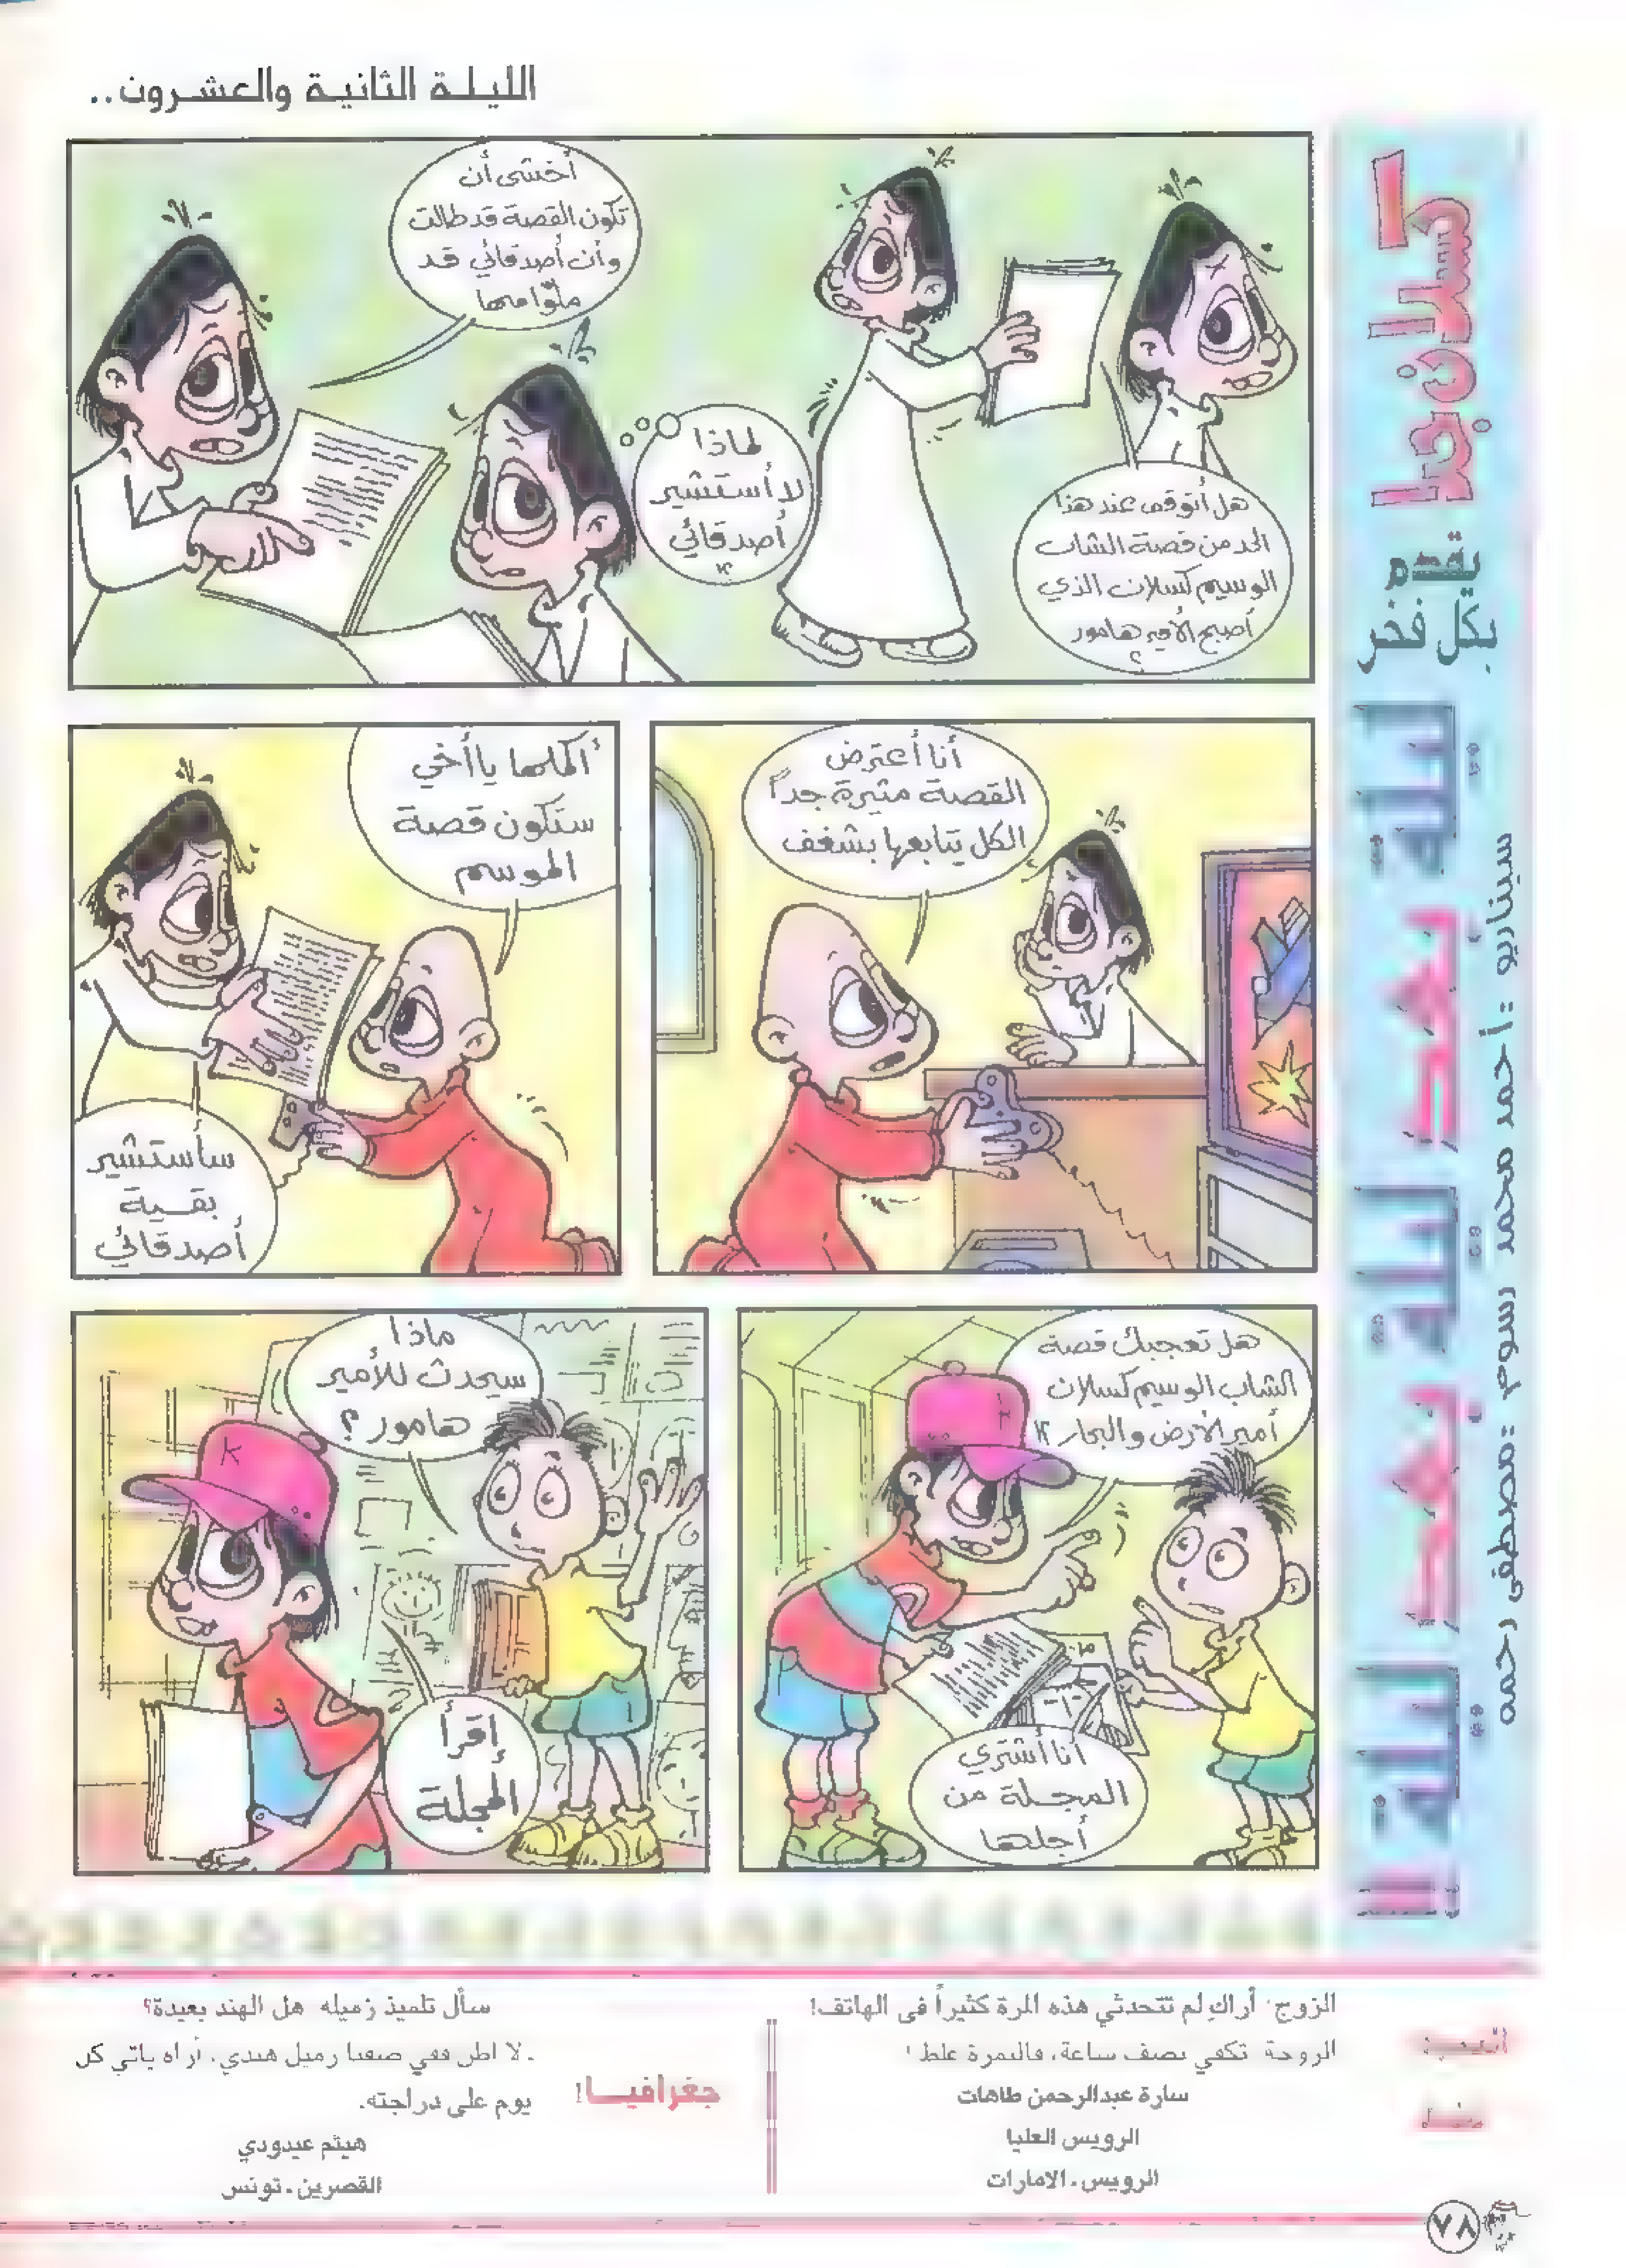 الليلة الثانية والعشرون..
كسلان جدا
يقدم
بكل فخر
ليلة بعد ليلة بعد ليلة !!
سيناريو : أحمد محمد رسوم : مصطفى رحمه
هل أتوقف عند هذا
الحد من قصة الشاب
الوسيم كسلان الذي
أصبح الأمير هامور
؟
لماذا
لا أستشير
أصدقائي
؟!
أخشى أن
تكون القصة قد طالت
وأن أصدقائي قد
ملّوا منها
أنا أعترض
القصة مثيرة جداً
الكل يتابعها بشغف
أكملها يا أخي
ستكون قصة
الموسم
سأستشير
بقية
أصدقائي
هل تعجبك قصة
الشاب الوسيم كسلان
أمير الأرض والبحار ؟!
أنا أشتري
المجلة من
أجلها
ماذا
سيحدث للأمير
هامور ؟
إقرأ
المجلة
K
الزوج: أراكِ لم تتحدثي هذه المرة كثيراً في الهاتف!
الزوجة: تكفي نصف ساعة، فالنمرة غلط!
سارة عبدالرحمن طاهات
الرويس العليا
الرويس ـ الامارات
جغرافيـا!
سأل تلميذ زميله: هل الهند بعيدة؟
ـ لا اظن ففي صفنا زميل هندي، أراه يأتي كل
يوم على دراجته.
هيثم عيدودي
القصرين ـ تونس
٧٨